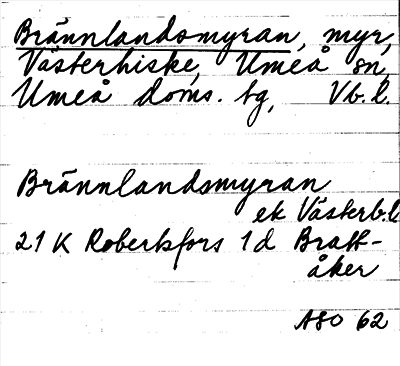 Brännlandsmyran, myr,
Västerhiske, Umeå sn,
Umeå doms. tg, Vb. l.
Brännlandsmyran
ek Västerb.l
21 K Robertsfors 1d Bratt-
åker
ASO 62